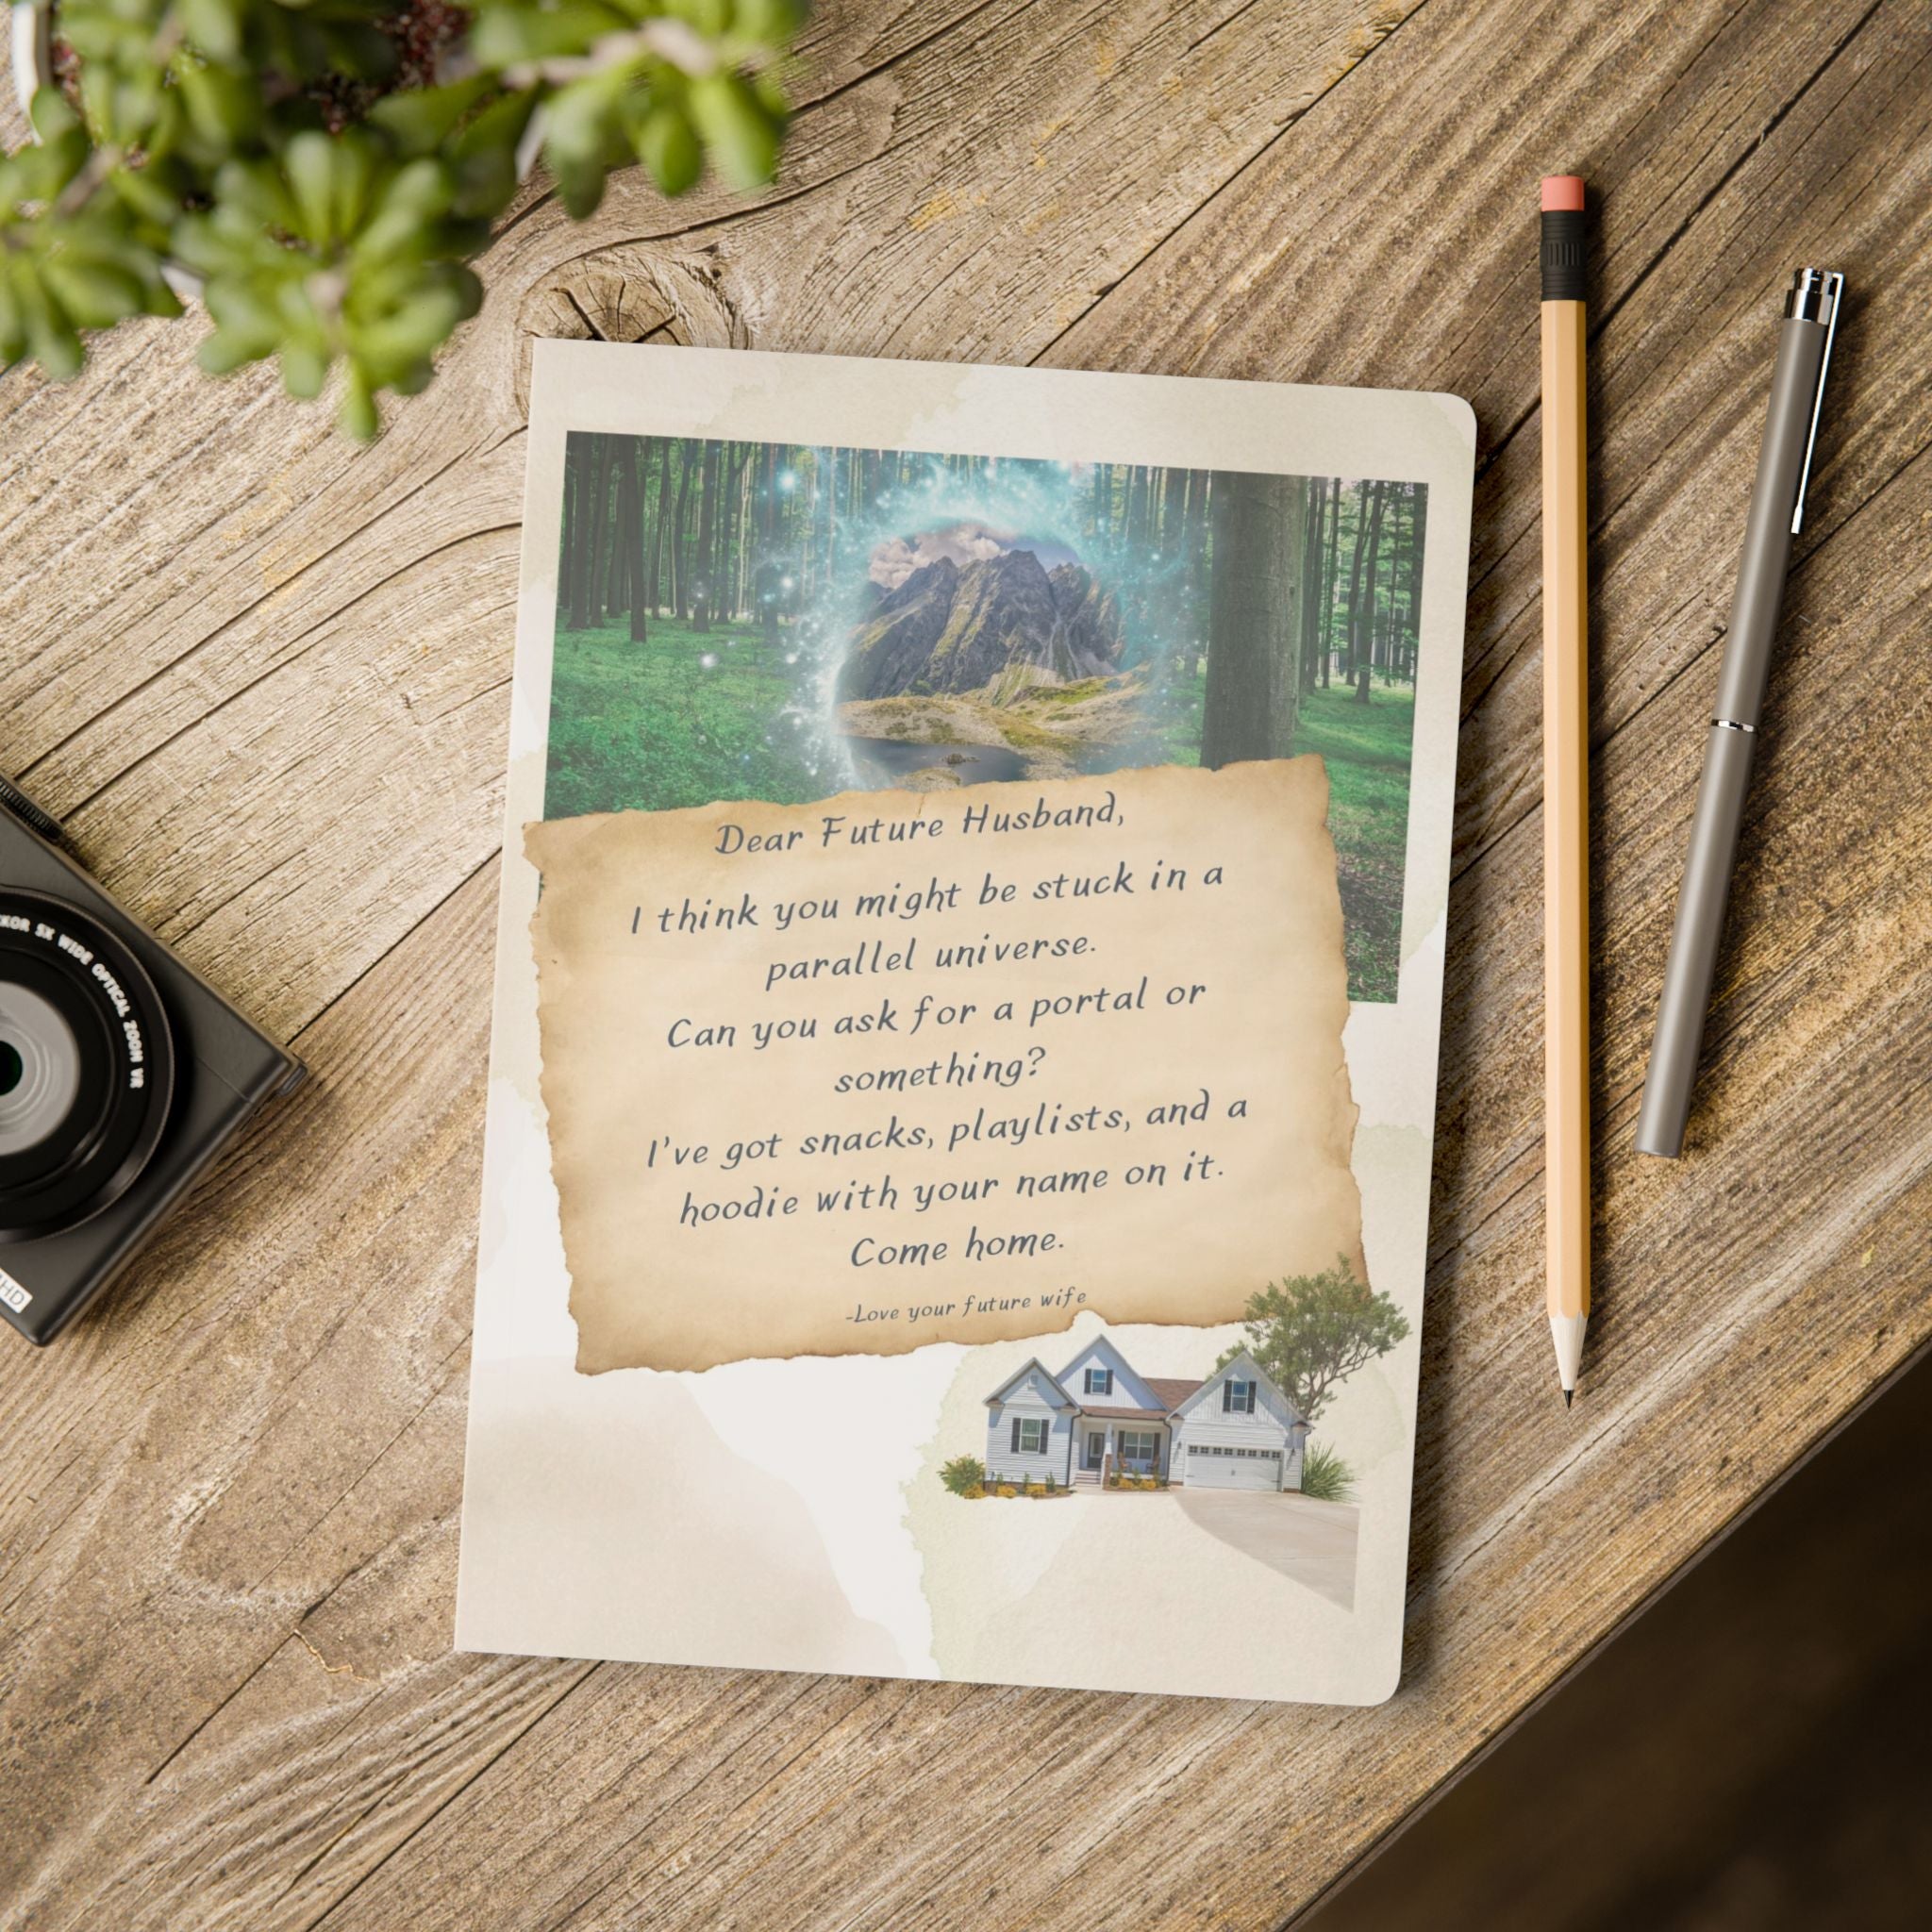 Dear Future Husband,
I think you might be stuck in a
parallel universe.
Can you ask for a portal or
something?
I've got snacks, playlists, and a
hoodie with your name on it.
Come home.
-Love your future wife
WIDE OPTICAL ZOOM VR
HD